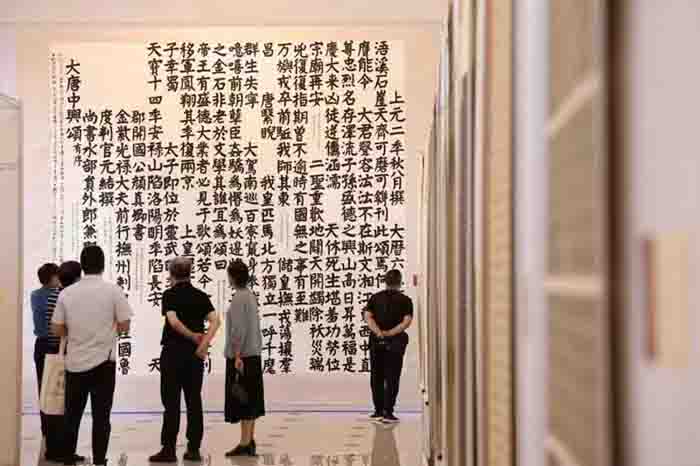 大唐中興頌有序
尚書水部員外郎兼
度判官元結撰
金紫光祿大夫前行撫州刺 國魯
郡開國公顏真卿書
天寶十四年安祿山陷洛陽明年陷長安 天
子幸蜀 太子即位於靈武
移軍鳳翔其年復兩京 上皇
帝王有盛德大業者必見于歌頌若今
之金石非老於文學其誰宜為頌曰
噫嘻前朝孽臣姦驕為惛為妖邊
群生失寧 大駕南巡百寮竄身
昌 唐繄睨 我皇匹馬北方獨立一呼千麾
萬旟我卒前驅我師其東 儲皇撫戎蕩攘群
兇復復指期曾不逾時有國無之事有至難
宗廟再安 二聖重歡地闢天開蠲除祅災瑞
慶大來凶徒逆儔涵濡 天休死生堪羞功勞位
尊忠烈名存澤流子孫盛德之興山高日昇萬福是
膺能令 大君聲容沄沄不在斯文湘江東西中直
浯溪石崖天齊可磨可鐫刊此頌焉何
上元二年秋八月撰 大曆六